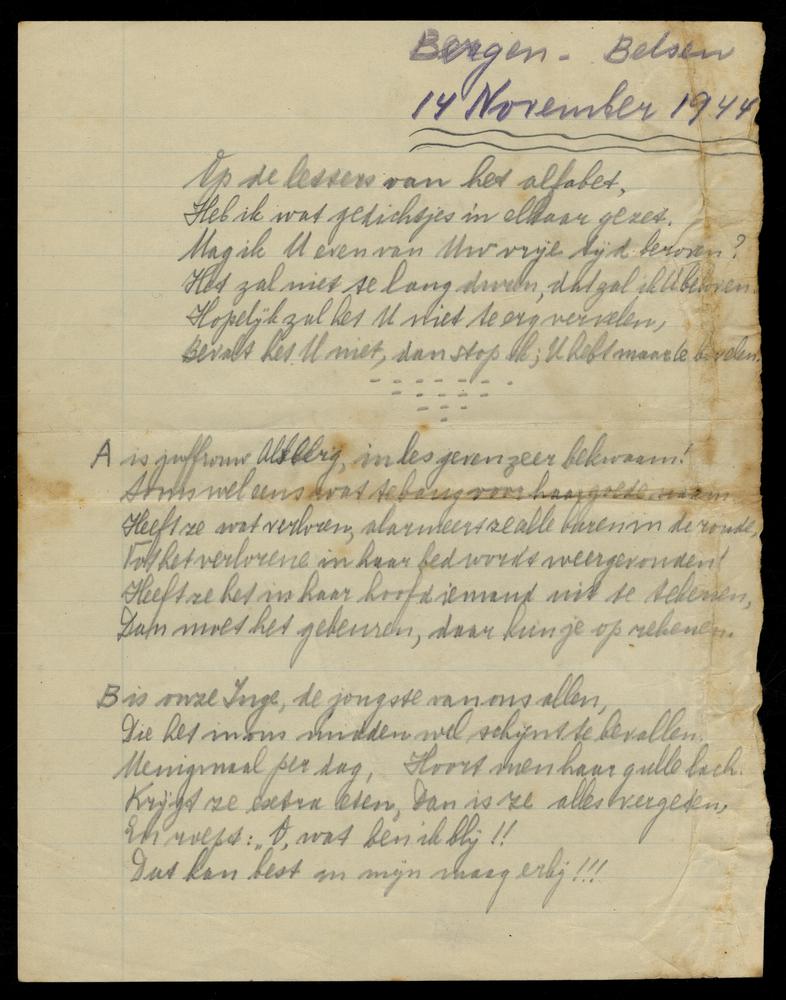 Bergen - Belsen
14 November 1944
Op de letters van het alfabet,
Heb ik wat gedichtjes in elkaar gezet.
Mag ik U even van Uw vrije tijd beroven?
Het zal niet te lang duren, dat zal ik U beloven.
Hopelijk zal het U niet te erg vervelen,
Bevalt het U niet, dan stop ik; U hebt maar te bevelen.
A is juffrouw Alsberg, in les geven zeer bekwaam!
Soms wel eens wat te bang voor haar goede naam.
Heeft ze wat verloren, alarmeert ze alle buren in de ronde,
Tot het verlorene in haar bed wordt weergevonden!
Heeft ze het in haar hoofd iemand uit te tekenen,
Dan moet het gebeuren, daar kun je op rekenen.
B is onze Inge, de jongste van ons allen,
Die het in ons midden wel schijnt te bevallen.
Menigmaal per dag, Hoort men haar gulle lach.
Krijgt ze extra eten, Dan is ze alles vergeten,
En roept: „O, wat ben ik blij!!
Dat kan best in mijn maag erbij!!!